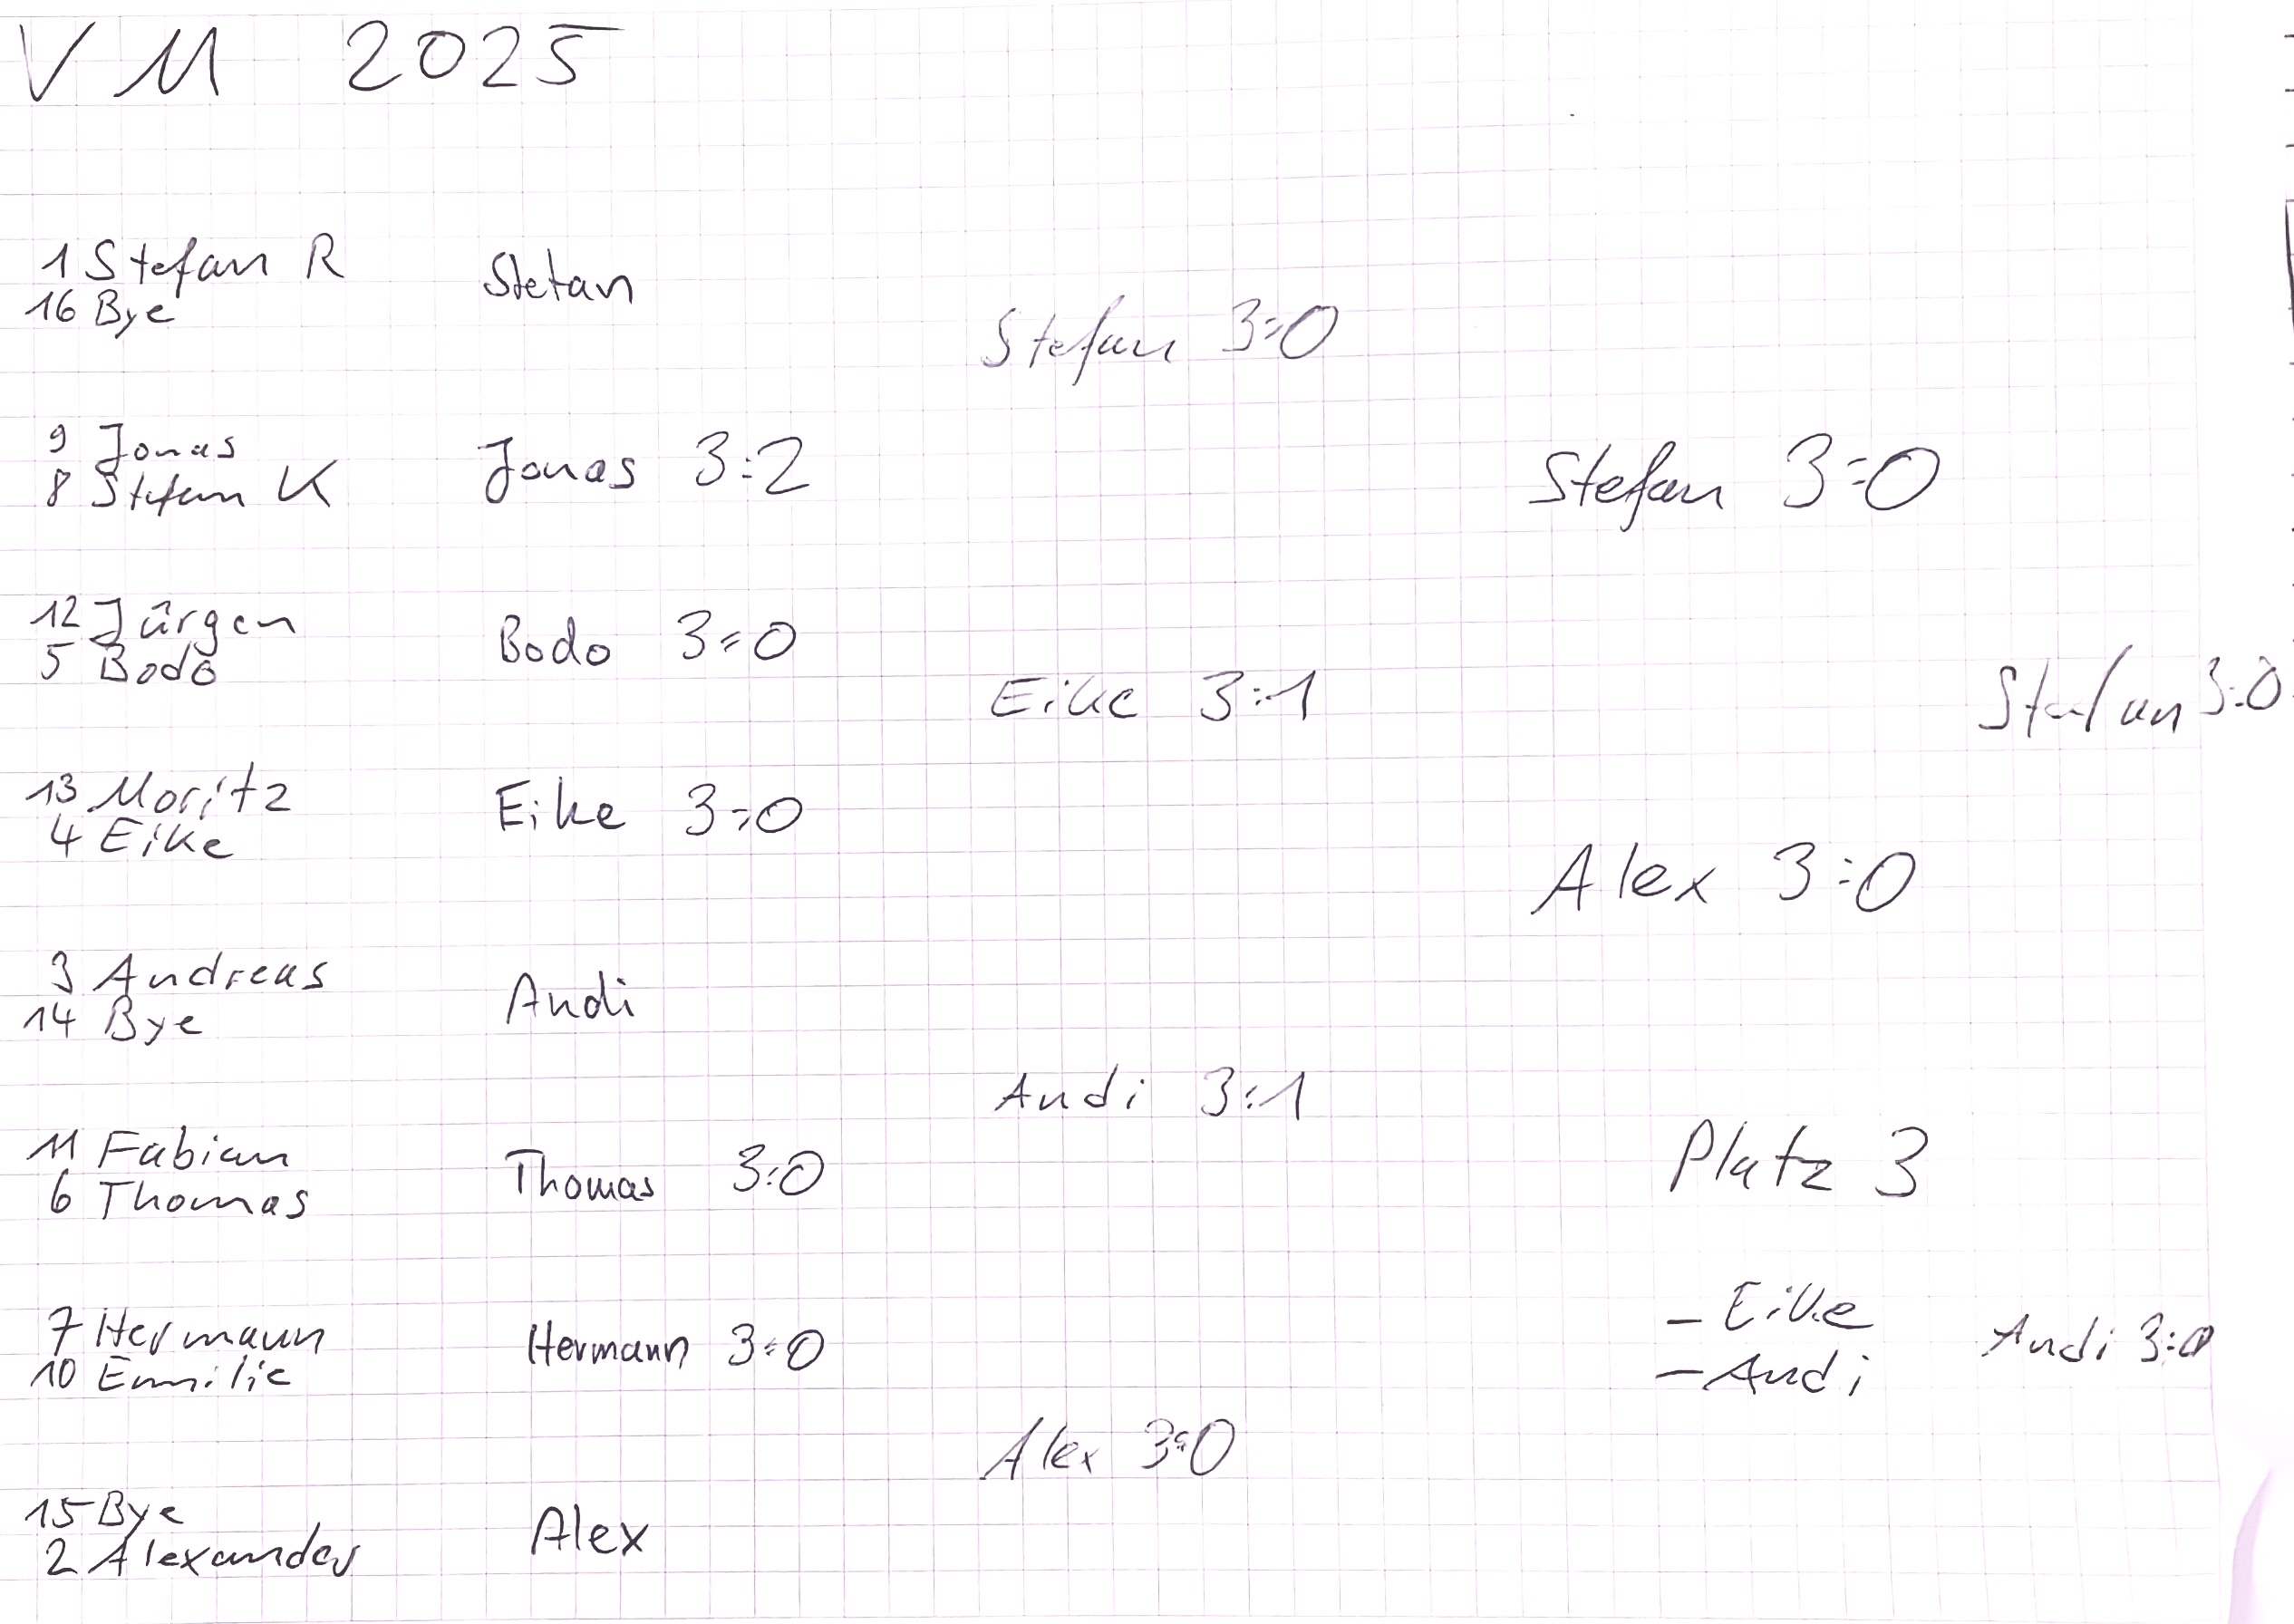 VM 2025
1 Stefan R
16 Bye
Stefan
Stefan 3:0
9 Jonas
8 Stefan K
Jonas 3:2
Stefan 3:0
12 Jürgen
5 Bodo
Bodo 3:0
Eike 3:1
Stefan 3:0
13 Moritz
4 Eike
Eike 3:0
Alex 3:0
3 Andreas
14 Bye
Andi
Andi 3:1
11 Fabian
6 Thomas
Thomas 3:0
Platz 3
7 Hermann
10 Emilie
Hermann 3:0
- Eike
- Andi
Andi 3:0
Alex 3:0
15 Bye
2 Alexander
Alex